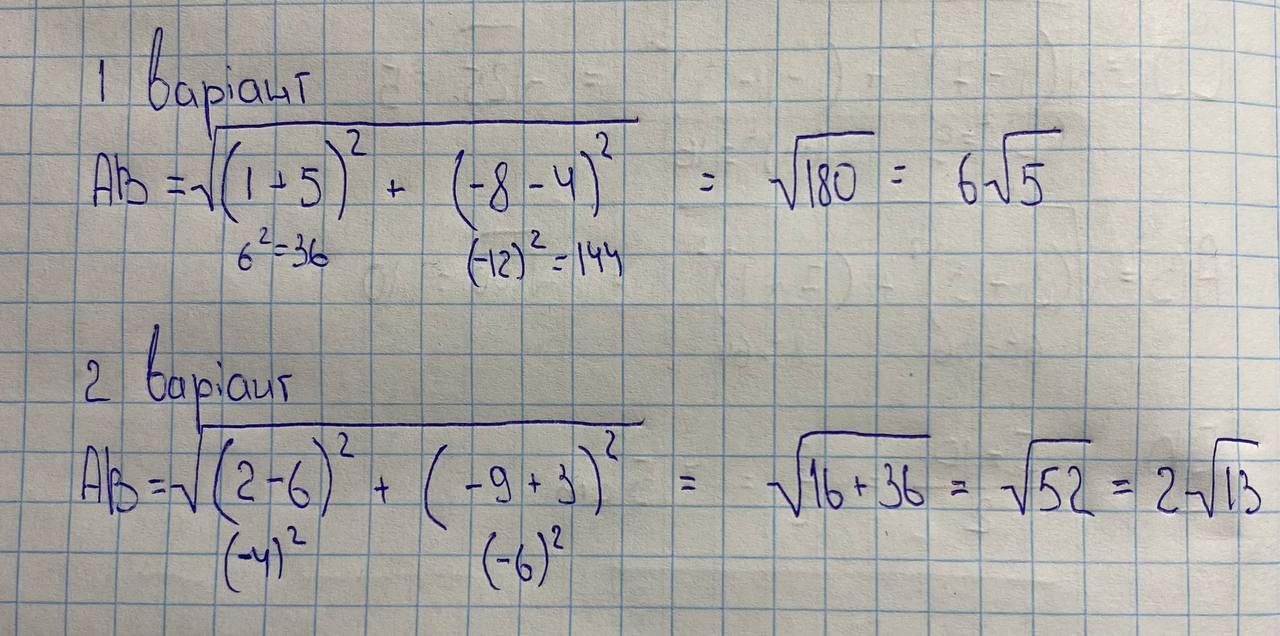 1 варіант
AB = √(1 + 5)² + (-8 - 4)² = √180 = 6√5
6² = 36 (-12)² = 144
2 варіант
AB = √(2 - 6)² + (-9 + 3)² = √16 + 36 = √52 = 2√13
(-4)² (-6)²